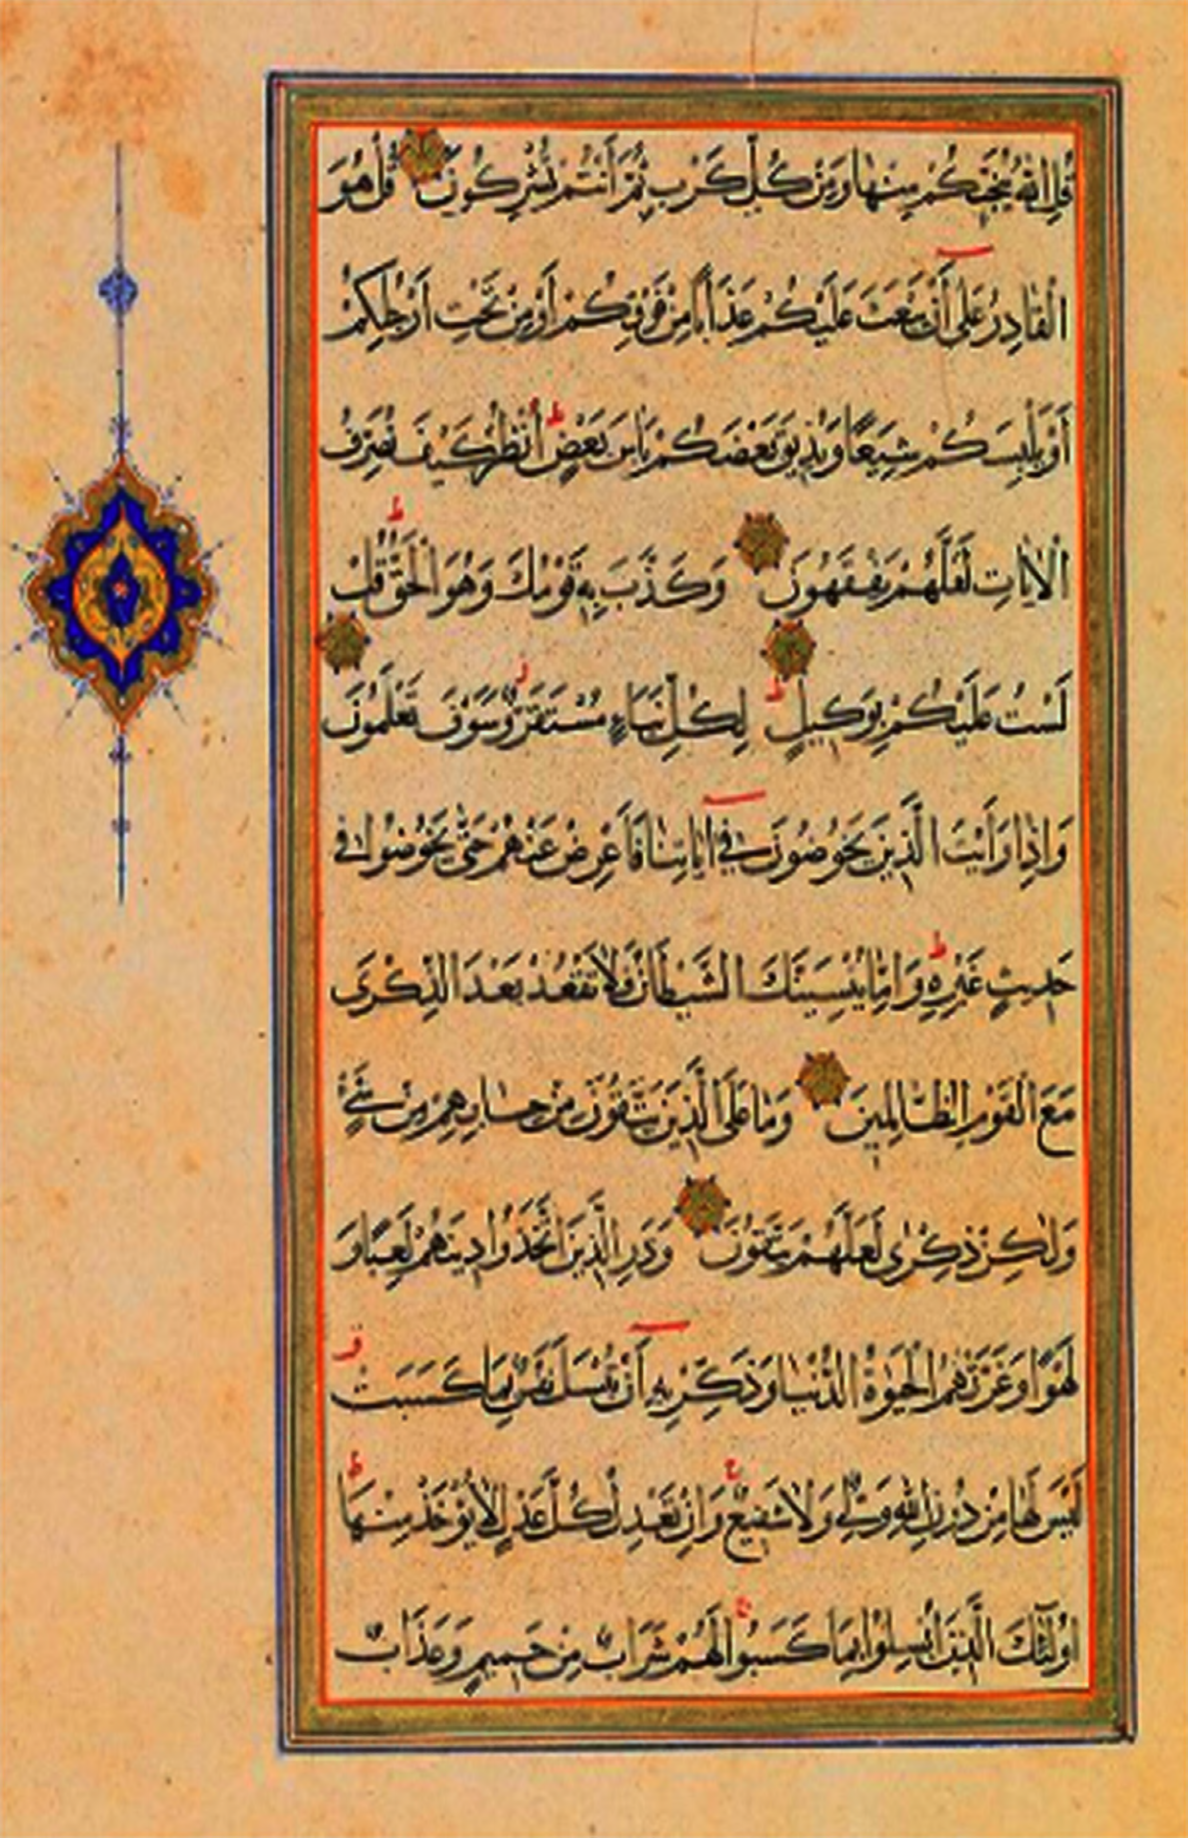 قُلِ اللّٰهُ يُنَجِّيكُمْ مِنْهَا وَمِنْ كُلِّ كَرْبٍ ثُمَّ أَنْتُمْ تُشْرِكُونَ قُلْ هُوَ
الْقَادِرُ عَلَى أَنْ يَبْعَثَ عَلَيْكُمْ عَذَابًا مِنْ فَوْقِكُمْ أَوْ مِنْ تَحْتِ أَرْجُلِكُمْ
أَوْ يَلْبِسَكُمْ شِيَعًا وَيُذِيقَ بَعْضَكُمْ بَاْسَ بَعْضٍ ط اُنْظُرْ كَيْفَ نُصَرِّفُ
الْاٰيَاتِ لَعَلَّهُمْ يَفْقَهُونَ وَكَذَّبَ بِهِ قَوْمُكَ وَهُوَ الْحَقُّ ط قُلْ
لَسْتُ عَلَيْكُمْ بِوَكِيلٍ ط لِكُلِّ نَبَاءٍ مُسْتَقَرٌّ ز وَسَوْفَ تَعْلَمُونَ
وَاِذَا رَأَيْتَ الَّذِينَ يَخُوضُونَ فِي اٰيَاتِنَا فَاَعْرِضْ عَنْهُمْ حَتّٰى يَخُوضُوا فِي
حَدِيثٍ غَيْرِهِ ط وَاِمَّا يُنْسِيَنَّكَ الشَّيْطَانُ فَلَا تَقْعُدْ بَعْدَ الذِّكْرَى
مَعَ الْقَوْمِ الظَّالِمِينَ وَمَا عَلَى الَّذِينَ يَتَّقُونَ مِنْ حِسَابِهِمْ مِنْ شَيْءٍ
وَلٰكِنْ ذِكْرٰى لَعَلَّهُمْ يَتَّقُونَ وَذَرِ الَّذِينَ اتَّخَذُوا دِينَهُمْ لَعِبًا وَ
لَهْوًا وَغَرَّتْهُمُ الْحَيٰوةُ الدُّنْيَا وَذَكِّرْ بِهِ أَنْ تُبْسَلَ نَفْسٌ بِمَا كَسَبَتْ
لَيْسَ لَهَا مِنْ دُونِ اللّٰهِ وَلِيٌّ وَلَا شَفِيعٌ ج وَاِنْ تَعْدِلْ كُلَّ عَدْلٍ لَا يُؤْخَذْ مِنْهَا ط
اُولٰئِكَ الَّذِينَ اُبْسِلُوا بِمَا كَسَبُوا ج لَهُمْ شَرَابٌ مِنْ حَمِيمٍ وَعَذَابٌ